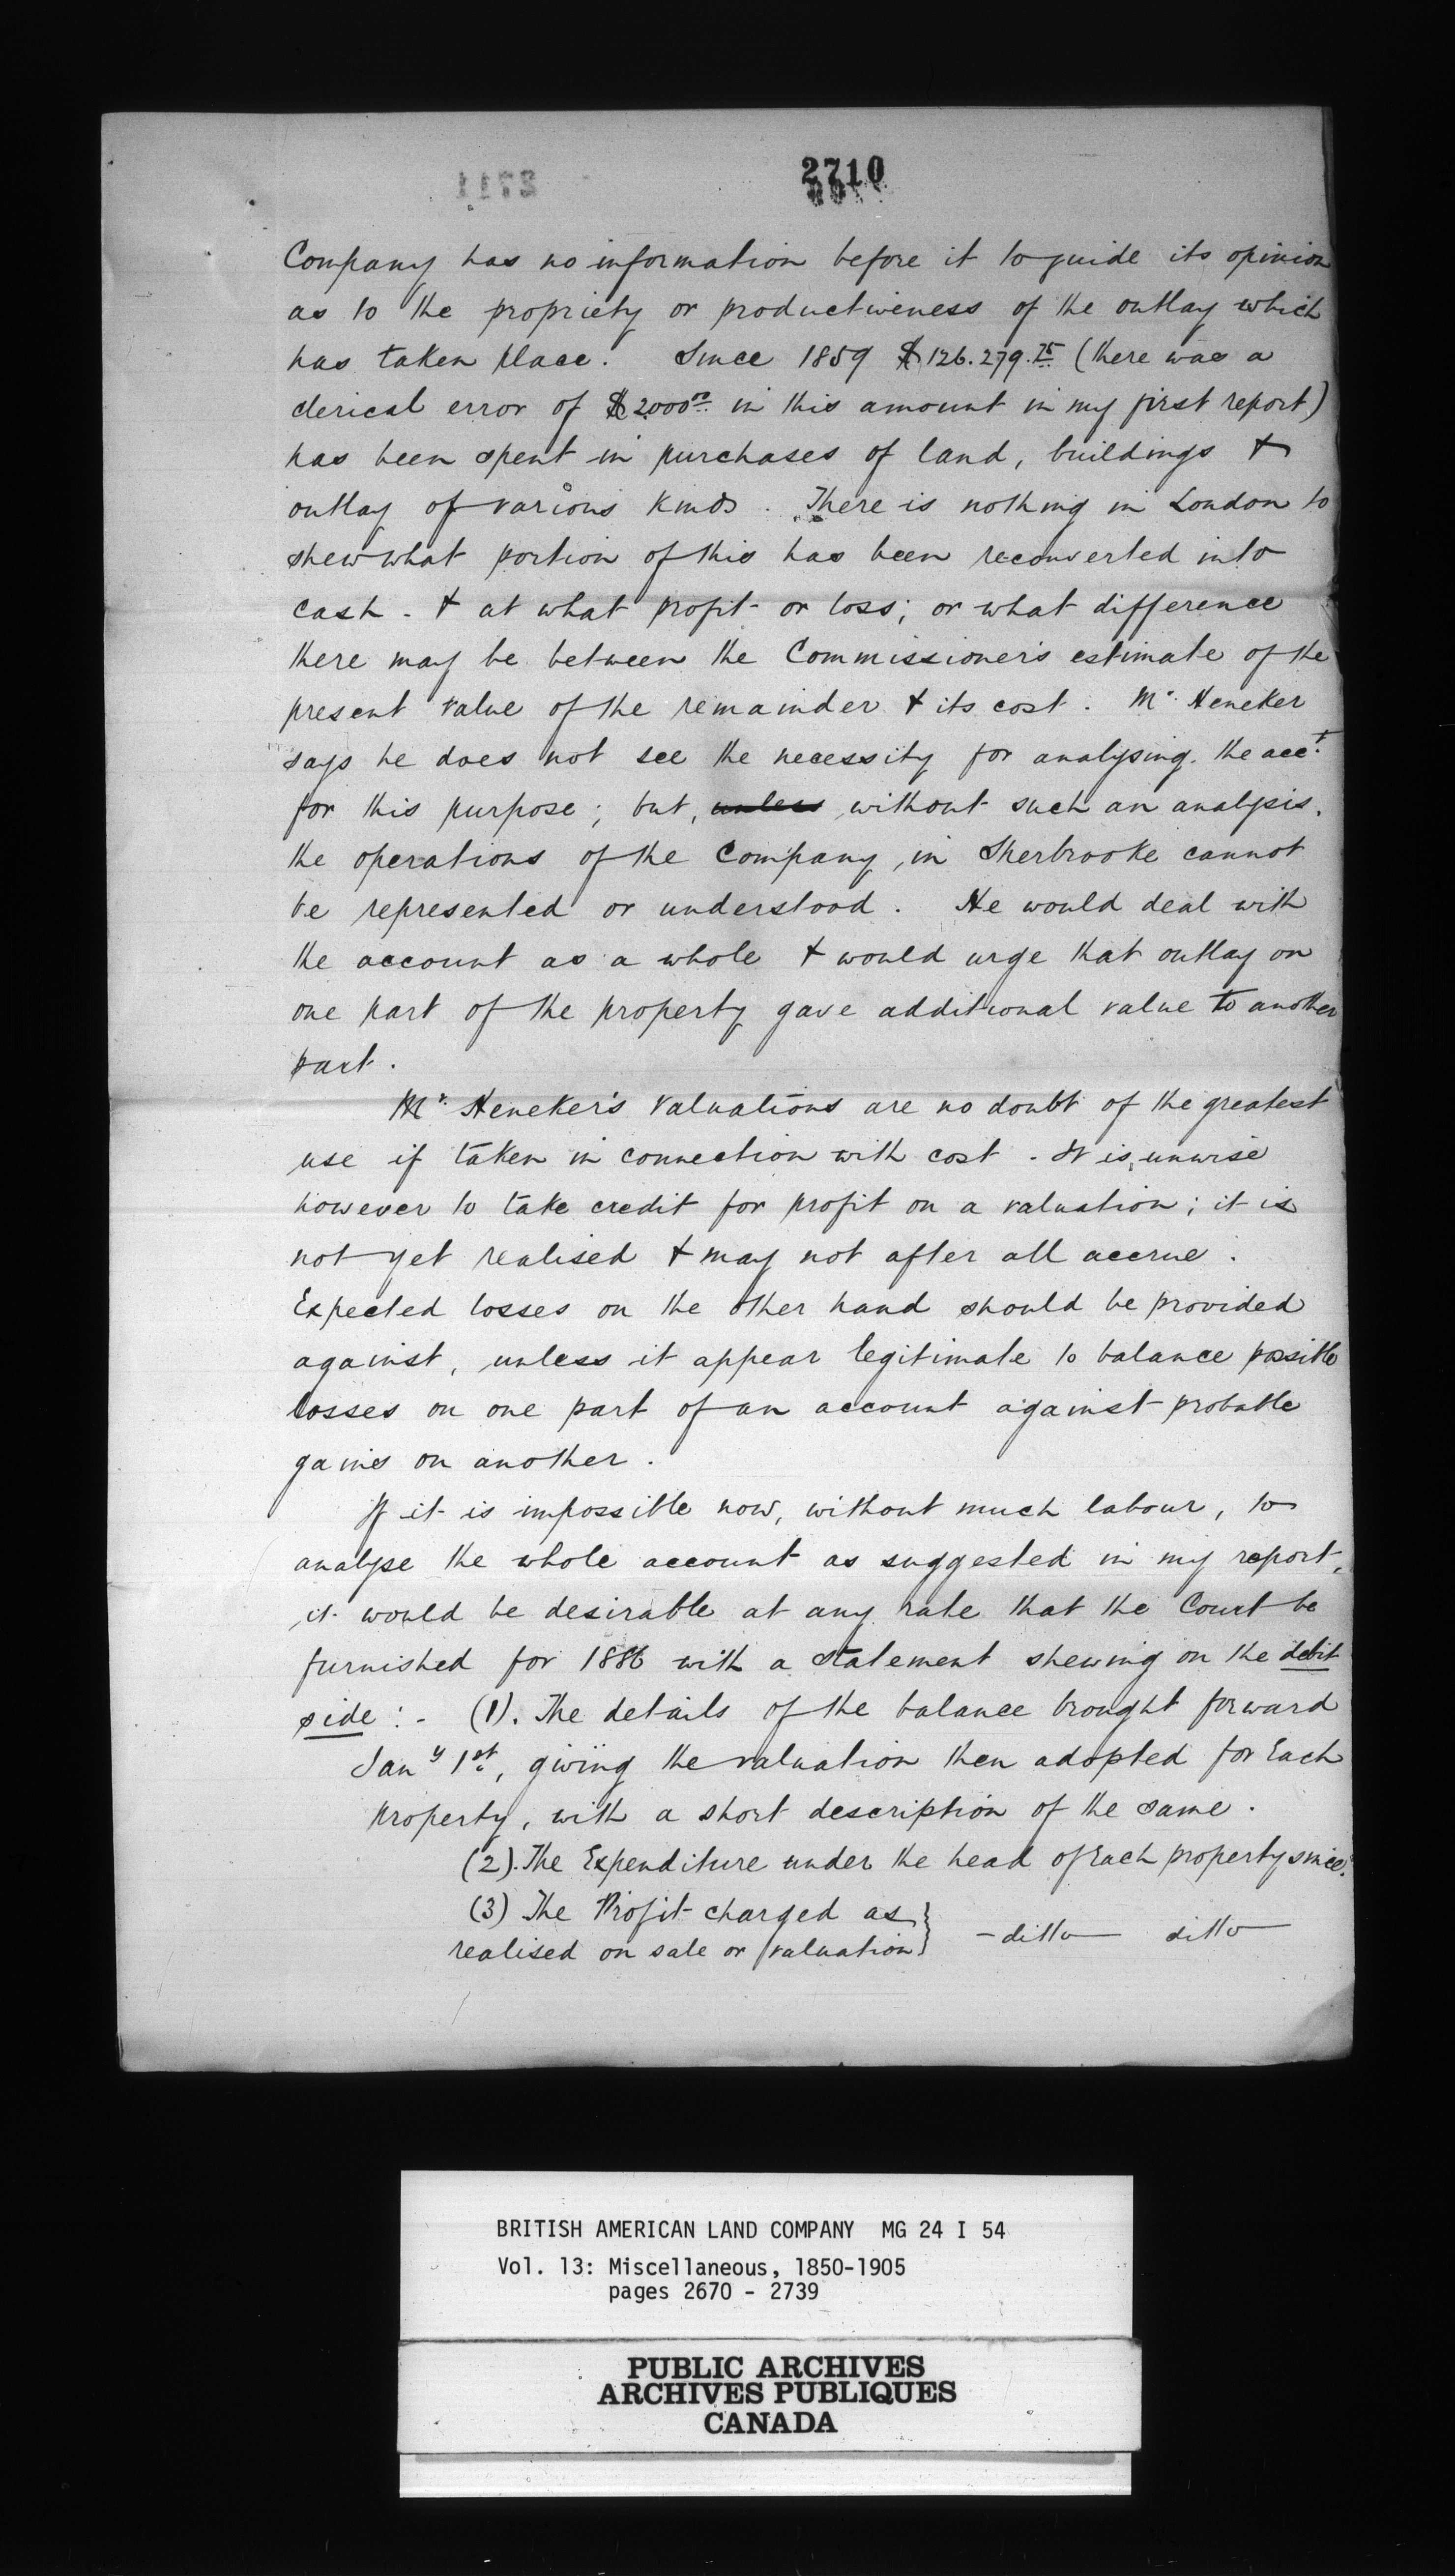 2710
Company has no information before it to guide its opinion
as to the propriety or productiveness of the outlay which
has taken place. Since 1859 $126.279.75 (there was a
clerical error of $2000.00 in this amount in my first report)
has been spent in purchases of land, buildings &
outlay of various kinds. There is nothing in London to
shew what portion of this has been reconverted into
cash - & at what profit or loss; or what difference
there may be between the Commissioner's estimate of the
present value of the remainder & its cost. Mr. Heneker
says he does not see the necessity for analysing the acct.
for this purpose; but, unless without such an analysis,
the operations of the Company, in Sherbrooke cannot
be represented or understood. He would deal with
the account as a whole & would urge that outlay on
one part of the property gave additional value to another
part.
Mr. Heneker's valuations are no doubt of the greatest
use if taken in connection with cost. It is unwise
however to take credit for profit on a valuation; it is
not yet realised & may not after all accrue.
Expected losses on the other hand should be provided
against, unless it appear legitimate to balance possible
losses on one part of an account against probable
gains on another.
If it is impossible now, without much labour, to
analyse the whole account as suggested in my report,
it would be desirable at any rate that the Court be
furnished for 1886 with a statement shewing on the debit
side:- (1). The details of the balance brought forward
Jany 1st, giving the valuation then adopted for Each
property, with a short description of the same.
(2). The Expenditure under the head of Each property since.
(3) The Profit charged as
realised on sale or valuation } - ditto - ditto
BRITISH AMERICAN LAND COMPANY MG 24 I 54
Vol. 13: Miscellaneous, 1850-1905
pages 2670 - 2739
PUBLIC ARCHIVES
ARCHIVES PUBLIQUES
CANADA